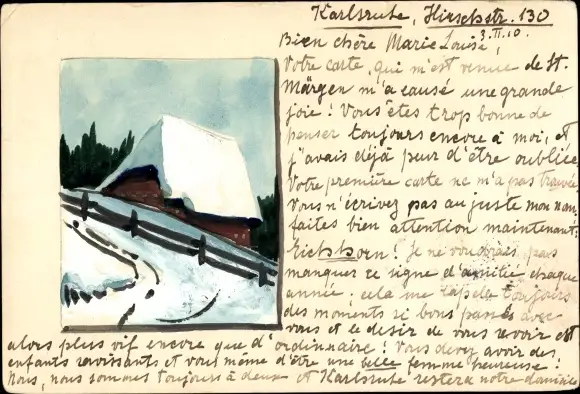 Karlsruhe, Hirschstr. 130
3.II.10.
Bien chère Marie Louise,
Votre carte, qui m'est venue de St.
Märgen m'a causé une grande
joie! Vous êtes trop bonne de
penser toujours encore à moi, et
j'avais déjà peur d'être oubliée
Votre première carte ne m'a pas trouvée
Vous n'écrivez pas au juste mon nom
faites bien attention maintenant:
Eichhorn! Je ne voudrais pas
manquer ce signe d'amitié chaque
année; cela me rapelle toujours
des moments si bons passés avec
vous et le desir de vous revoir est
alors plus vif encore que d'ordinnaire! Vous devez avoir des
enfants ravissants et vous même d'être une belle femme heureuse!
Nous, nous sommes toujours à deux et Karlsruhe restera notre domicile